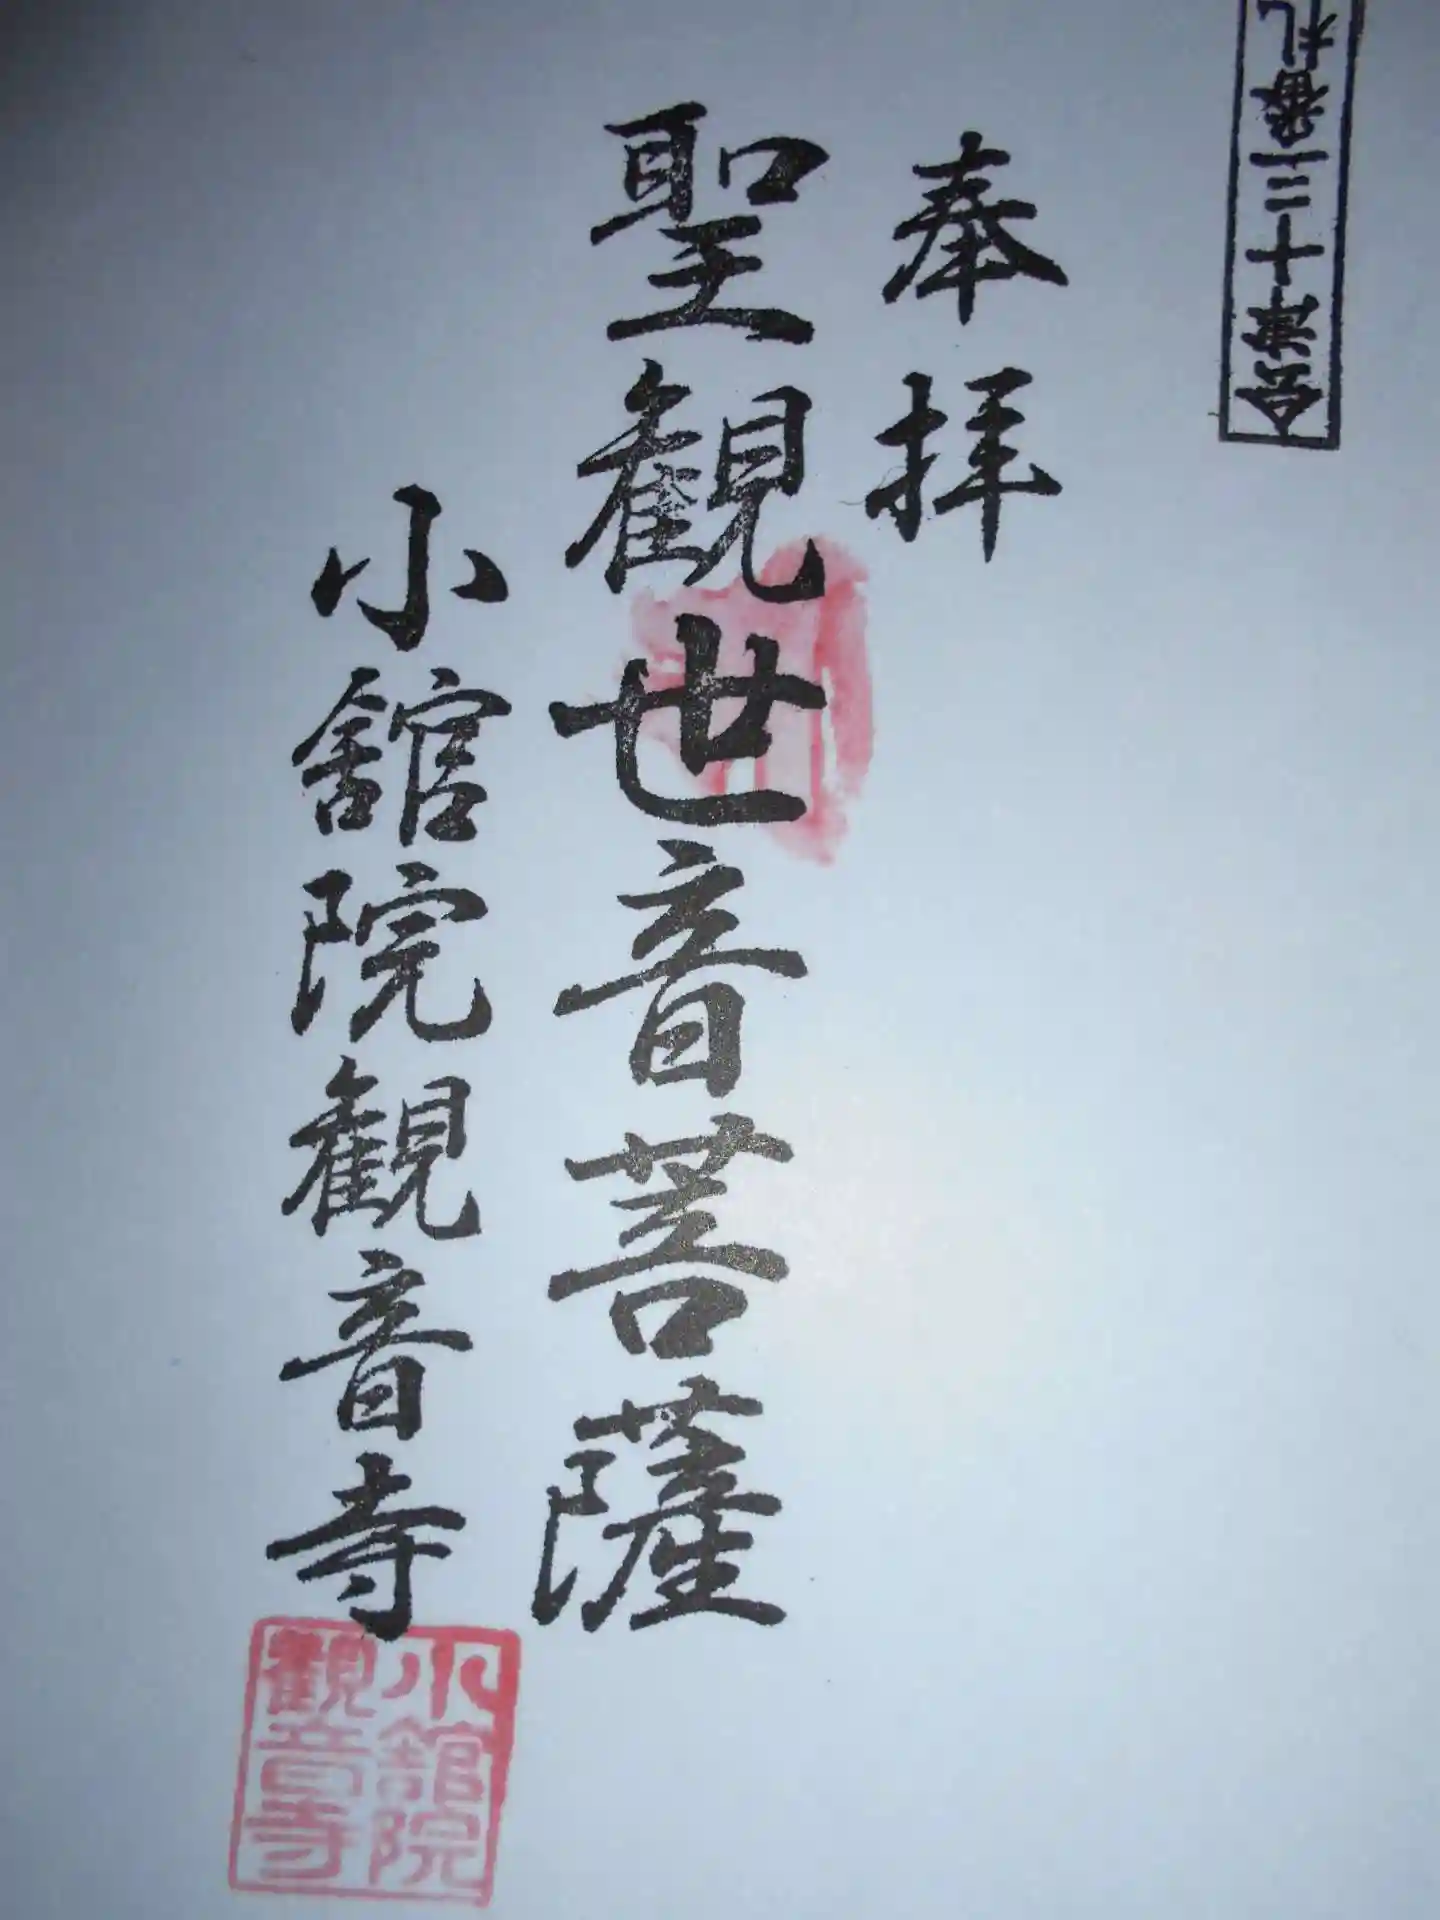 会津十三番札
奉拝
聖観世音菩薩
小舘院観音寺
小舘院
観音寺